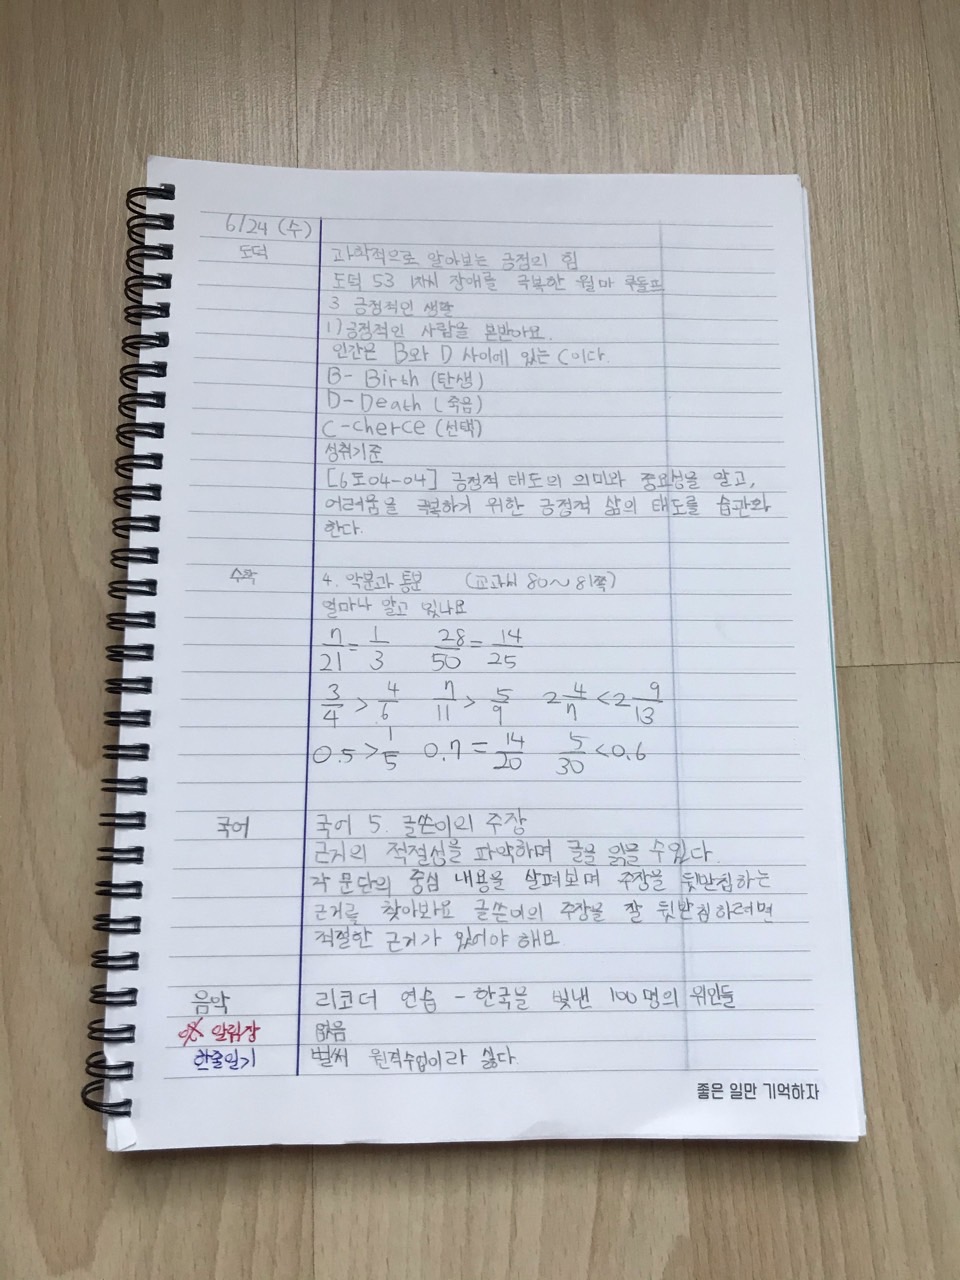 6/24 (수)
도덕 과학적으로 알아보는 긍정의 힘
도덕 53 1차시 장애를 극복한 윌마 루돌프
3 긍정적인 생활
1) 긍정적인 사람을 본받아요.
인간은 B와 D 사이에 있는 C이다.
B- Birth (탄생)
D-Death (죽음)
C-cherce (선택)
성취기준
[6도04-04] 긍정적 태도의 의미와 중요성을 알고,
어려움을 극복하기 위한 긍정적 삶의 태도를 습관화
한다.
수학 4. 약분과 통분 (교과서 80~81쪽)
얼마나 알고 있나요
7/21 = 1/3 28/50 = 14/25
3/4 > 4/6 7/11 > 5/9 2 4/7 < 2 9/13
0.5 > 1/5 0.7 = 14/20 5/30 < 0.6
국어 국어 5. 글쓴이의 주장
근거의 적절성을 파악하며 글을 읽을 수 있다.
각 문단의 중심 내용을 살펴보며 주장을 뒷받침하는
근거를 찾아봐요 글쓴이의 주장을 잘 뒷받침하려면
적절한 근거가 있어야 해요
음악 리코더 연습 - 한국을 빛낸 100명의 위인들
알림장 없음
한줄일기 벌써 원격수업이라 싫다.
좋은 일만 기억하자